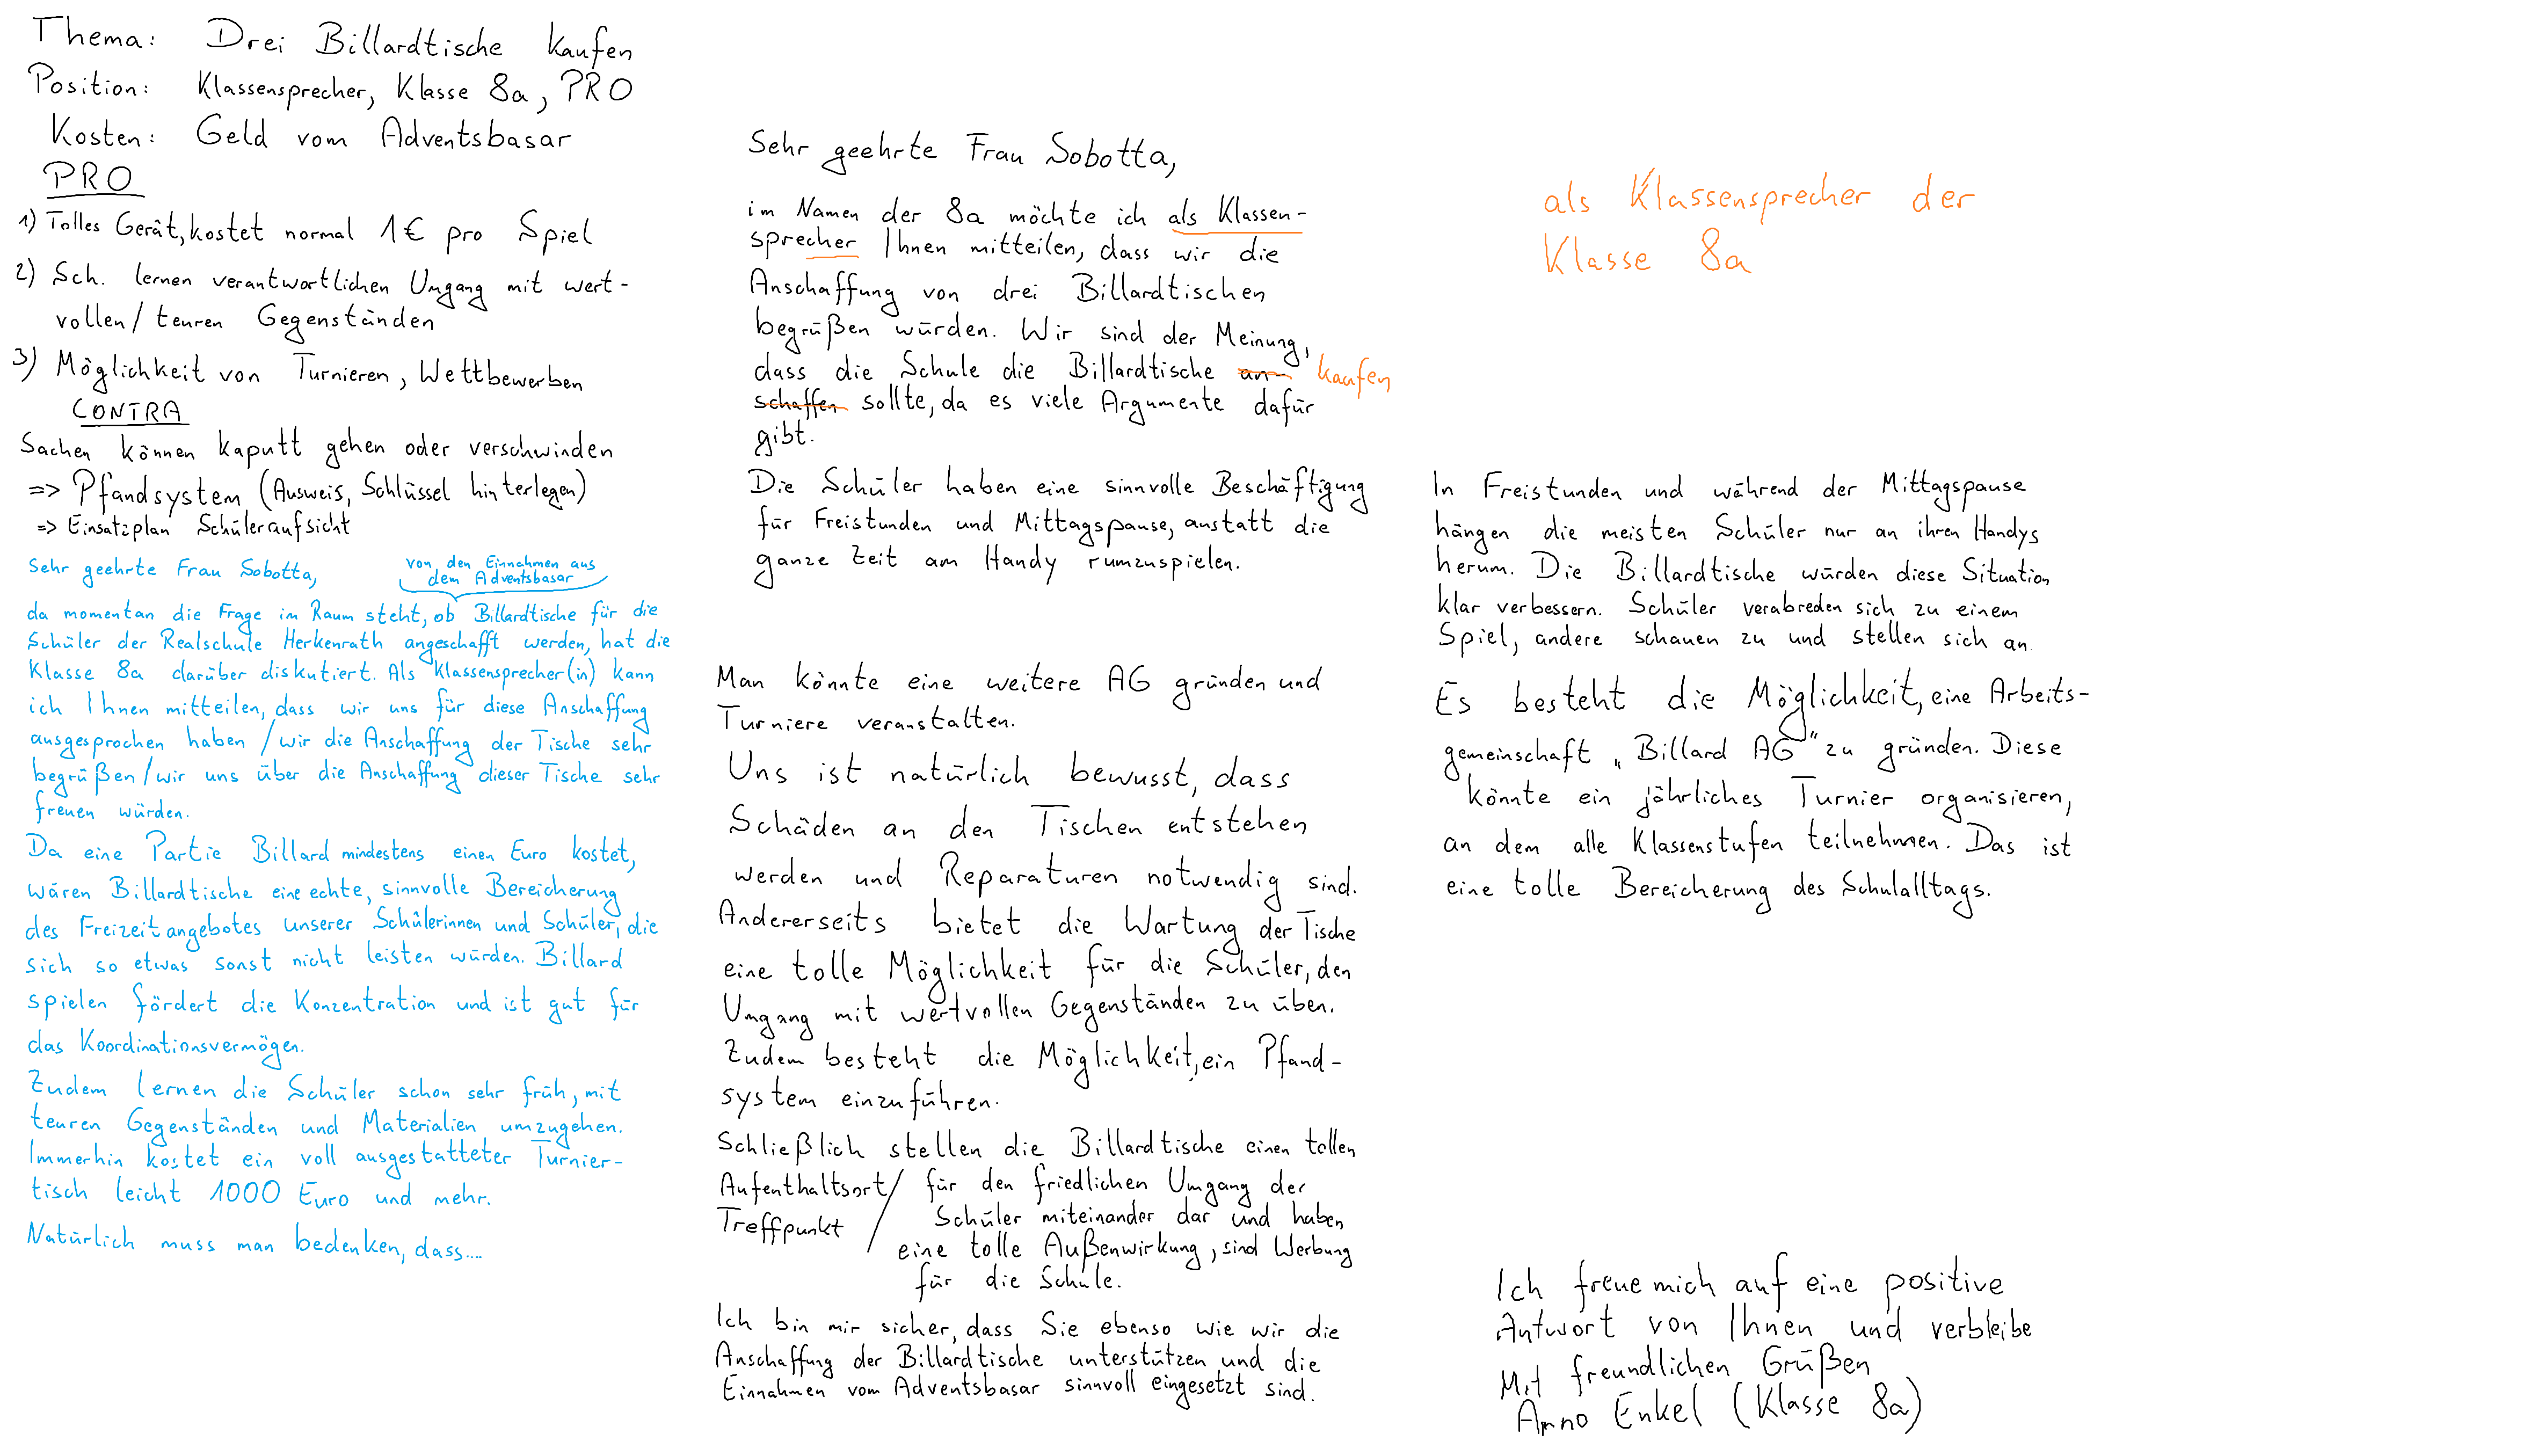 Thema: Drei Billardtische kaufen
Position: Klassensprecher, Klasse 8a, PRO
Kosten: Geld vom Adventsbasar
PRO
1) Tolles Gerät, kostet normal 1€ pro Spiel
2) Sch. lernen verantwortlichen Umgang mit wert-
vollen/teuren Gegenständen
3) Möglichkeit von Turnieren, Wettbewerben
CONTRA
Sachen können kaputt gehen oder verschwinden
=> Pfandsystem (Ausweis, Schlüssel hinterlegen)
=> Einsatzplan Schüleraufsicht
Sehr geehrte Frau Sobotta,
von den Einnahmen aus
dem Adventsbasar
da momentan die Frage im Raum steht, ob Billardtische für die
Schüler der Realschule Herkenrath angeschafft werden, hat die
Klasse 8a darüber diskutiert. Als Klassensprecher(in) kann
ich Ihnen mitteilen, dass wir uns für diese Anschaffung
ausgesprochen haben / wir die Anschaffung der Tische sehr
begrüßen / wir uns über die Anschaffung dieser Tische sehr
freuen würden.
Da eine Partie Billard mindestens einen Euro kostet,
wären Billardtische eine echte, sinnvolle Bereicherung
des Freizeitangebotes unserer Schülerinnen und Schüler, die
sich so etwas sonst nicht leisten würden. Billard
spielen fördert die Konzentration und ist gut für
das Koordinationsvermögen.
Zudem lernen die Schüler schon sehr früh, mit
teuren Gegenständen und Materialien umzugehen.
Immerhin kostet ein voll ausgestatteter Turnier-
tisch leicht 1000 Euro und mehr.
Natürlich muss man bedenken, dass....
Sehr geehrte Frau Sobotta,
im Namen der 8a möchte ich als Klassen-
sprecher Ihnen mitteilen, dass wir die
Anschaffung von drei Billardtischen
begrüßen würden. Wir sind der Meinung,
dass die Schule die Billardtische an- kaufen
schaffen sollte, da es viele Argumente dafür
gibt.
Die Schüler haben eine sinnvolle Beschäftigung
für Freistunden und Mittagspause, anstatt die
ganze Zeit am Handy rumzuspielen.
Man könnte eine weitere AG gründen und
Turniere veranstalten.
Uns ist natürlich bewusst, dass
Schäden an den Tischen entstehen
werden und Reparaturen notwendig sind.
Andererseits bietet die Wartung der Tische
eine tolle Möglichkeit für die Schüler, den
Umgang mit wertvollen Gegenständen zu üben.
Zudem besteht die Möglichkeit, ein Pfand-
system einzuführen.
Schließlich stellen die Billardtische einen tollen
Aufenthaltsort/ für den friedlichen Umgang der
Treffpunkt / Schüler miteinander dar und haben
eine tolle Außenwirkung, sind Werbung
für die Schule.
Ich bin mir sicher, dass Sie ebenso wie wir die
Anschaffung der Billardtische unterstützen und die
Einnahmen vom Adventsbasar sinnvoll eingesetzt sind.
als Klassensprecher der
Klasse 8a
In Freistunden und während der Mittagspause
hängen die meisten Schüler nur an ihren Handys
herum. Die Billardtische würden diese Situation
klar verbessern. Schüler verabreden sich zu einem
Spiel, andere schauen zu und stellen sich an.
Es besteht die Möglichkeit, eine Arbeits-
gemeinschaft „Billard AG" zu gründen. Diese
könnte ein jährliches Turnier organisieren,
an dem alle Klassenstufen teilnehmen. Das ist
eine tolle Bereicherung des Schulalltags.
Ich freue mich auf eine positive
Antwort von Ihnen und verbleibe
Mit freundlichen Grüßen
Arno Enkel (Klasse 8a)